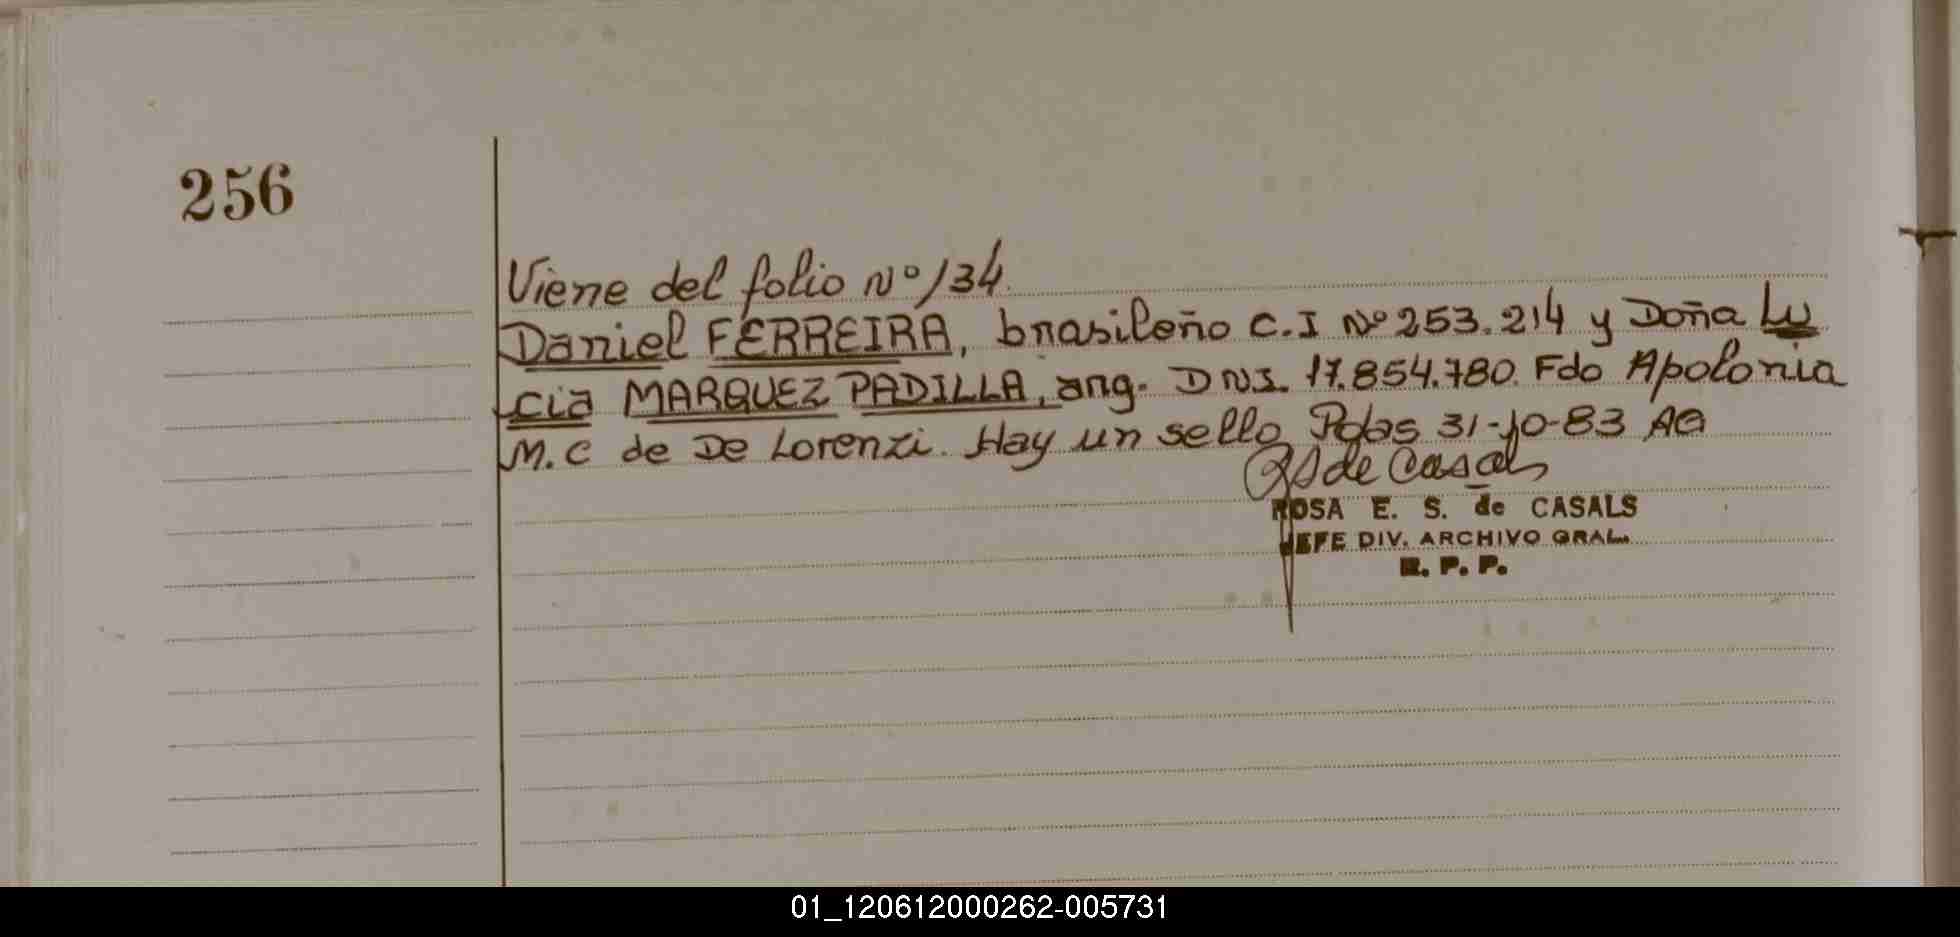 256
Viene del folio Nº 134.
Daniel FERREIRA, brasileño C.I Nº 253.214 y Doña Lu
cia MARQUEZ PADILLA, arg. DNI. 17.854.780. Fdo Apolonia
M.C de De Lorenzi. Hay un sello Pdas 31-10-83 AG
RS de Casals
ROSA E. S. de CASALS
JEFE DIV. ARCHIVO GRAL.
R. P. P.
01_120612000262-005731